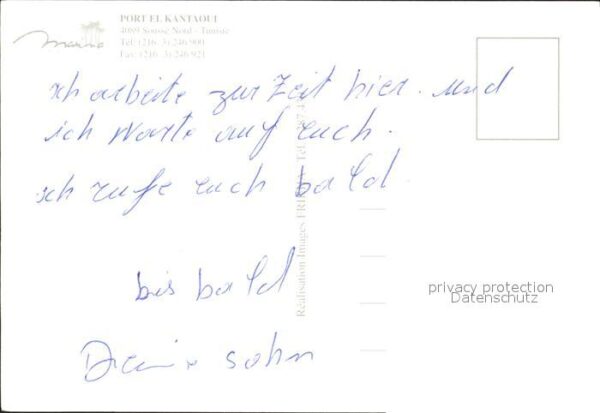 Marina
PORT EL KANTAOUI
4089 Sousse Nord - Tunisie
Tél: (216 - 3) 246 900
Fax: (216 - 3) 246 921
ich arbeite zur Zeit hier. und
ich warte auf euch.
ich rufe euch bald
bis bald
sohn
Réalisation-Images
privacy protection
Datenschutz